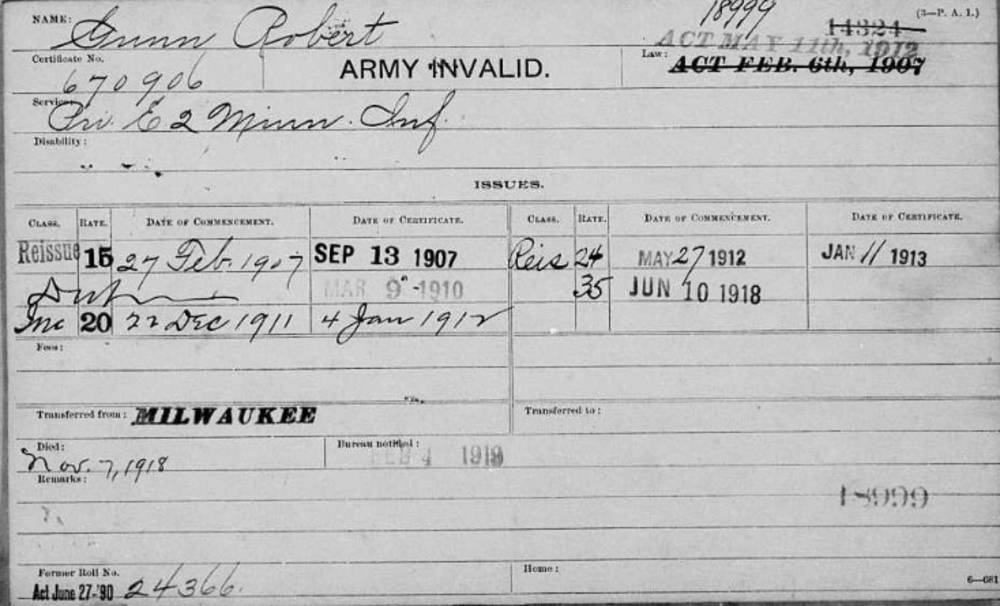 NAME: Gunn Robert 18999 14324 (3—P. A. I.)
ACT MAY 11th, 1912
Certificate No. 670906 ARMY INVALID. Law: ACT FEB. 6th, 1907
Service: Pri. E 2 Minn. Inf.
Disability:
ISSUES.
CLASS. RATE. DATE OF COMMENCEMENT. DATE OF CERTIFICATE. CLASS. RATE. DATE OF COMMENCEMENT. DATE OF CERTIFICATE.
Reissue 15 27 Feb. 1907 SEP 13 1907 Reis 24 MAY 27 1912 JAN 11 1913
MAR 9 1910 35 JUN 10 1918
Inc 20 22 Dec 1911 4 Jan 1912
Fees:
Transferred from: MILWAUKEE Transferred to:
Died: Nov. 7, 1918 Bureau notified: FEB 4 1919
Remarks:
18999
Former Roll No. Home:
Act June 27-'90 24366. 6—681